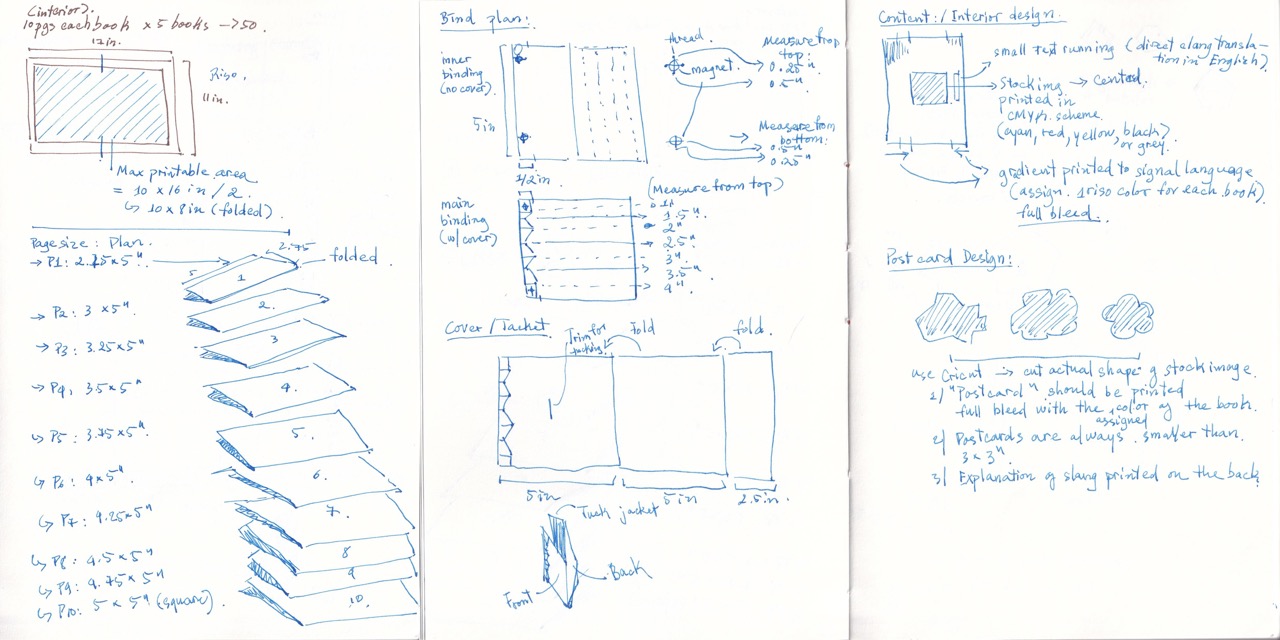 (interior).
10pgs each book x 5 books -> 50.
17in.
Riso.
11in.
Max printable area
= 10 x 16 in / 2.
↳ 10 x 8 in (folded).
Page size: Plan.
→ P1: 2.75 x 5".
→ P2: 3 x 5".
→ P3: 3.25 x 5"
→ P4, 3.5 x 5"
↳ P5: 3.75 x 5".
↳ P6: 4 x 5".
↳ P7: 4.25 x 5"
↳ P8: 4.5 x 5"
↳ P9: 4.75 x 5"
↳ P10: 5 x 5" (square).
2.75
5
folded.
1
2.
3
4.
5.
6.
7.
8
9
10.
Bind plan:
inner
binding
(no cover)
5in
1/2in.
thread.
magnet.
Measure from
top:
0.25"
0.5"
Measure from
bottom:
0.5"
0.25"
main
binding
(w/ cover)
(Measure from top)
1"
1.5"
2"
2.5"
3"
3.5"
4"
Cover / Jacket.
Trim for
tucking.
Fold
fold.
5in
5in
2.5in.
Tuck jacket
Front
Back
Content: / Interior design.
small text running (direct slang transla-
tion in English)
Stocking → centered.
printed in
CMYK. scheme.
(cyan, red, yellow, black)
or grey.
gradient printed to signal language
(assign. 1 riso color for each book)
full bleed.
Post card Design:
use Cricut → cut actual shape of stock image.
1) "Postcard" should be printed
full bleed with the color of the book.
assigned
2) Postcards are always smaller than
3 x 3"
3) Explanation of slang printed on the back.